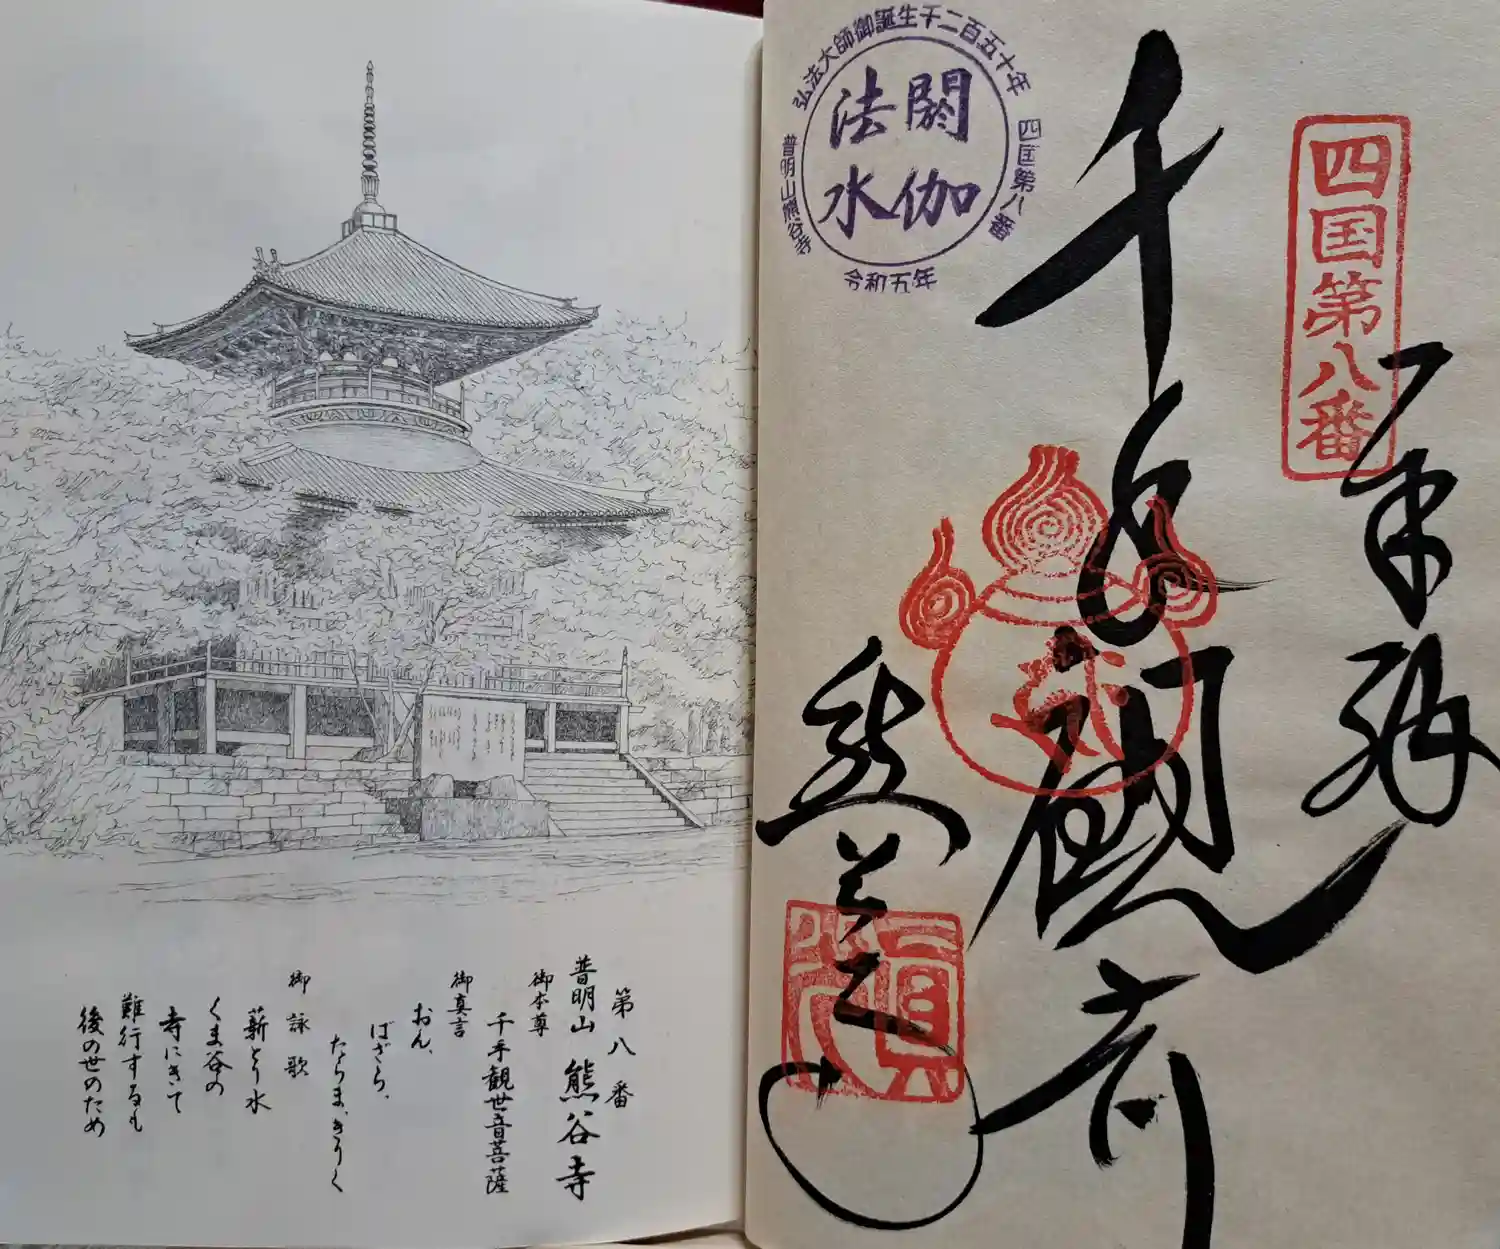 四国第八番
奉納
千手観音
熊谷寺
弘法大師御誕生千二百五十年
四国第八番
普明山熊谷寺
閼伽
法水
令和五年
第八番
普明山 熊谷寺
御本尊
千手観世音菩薩
御真言
おん、
ばざら、
たらま、きりく
御詠歌
薪とり水
くま谷の
寺にきて
難行するも
後の世のため